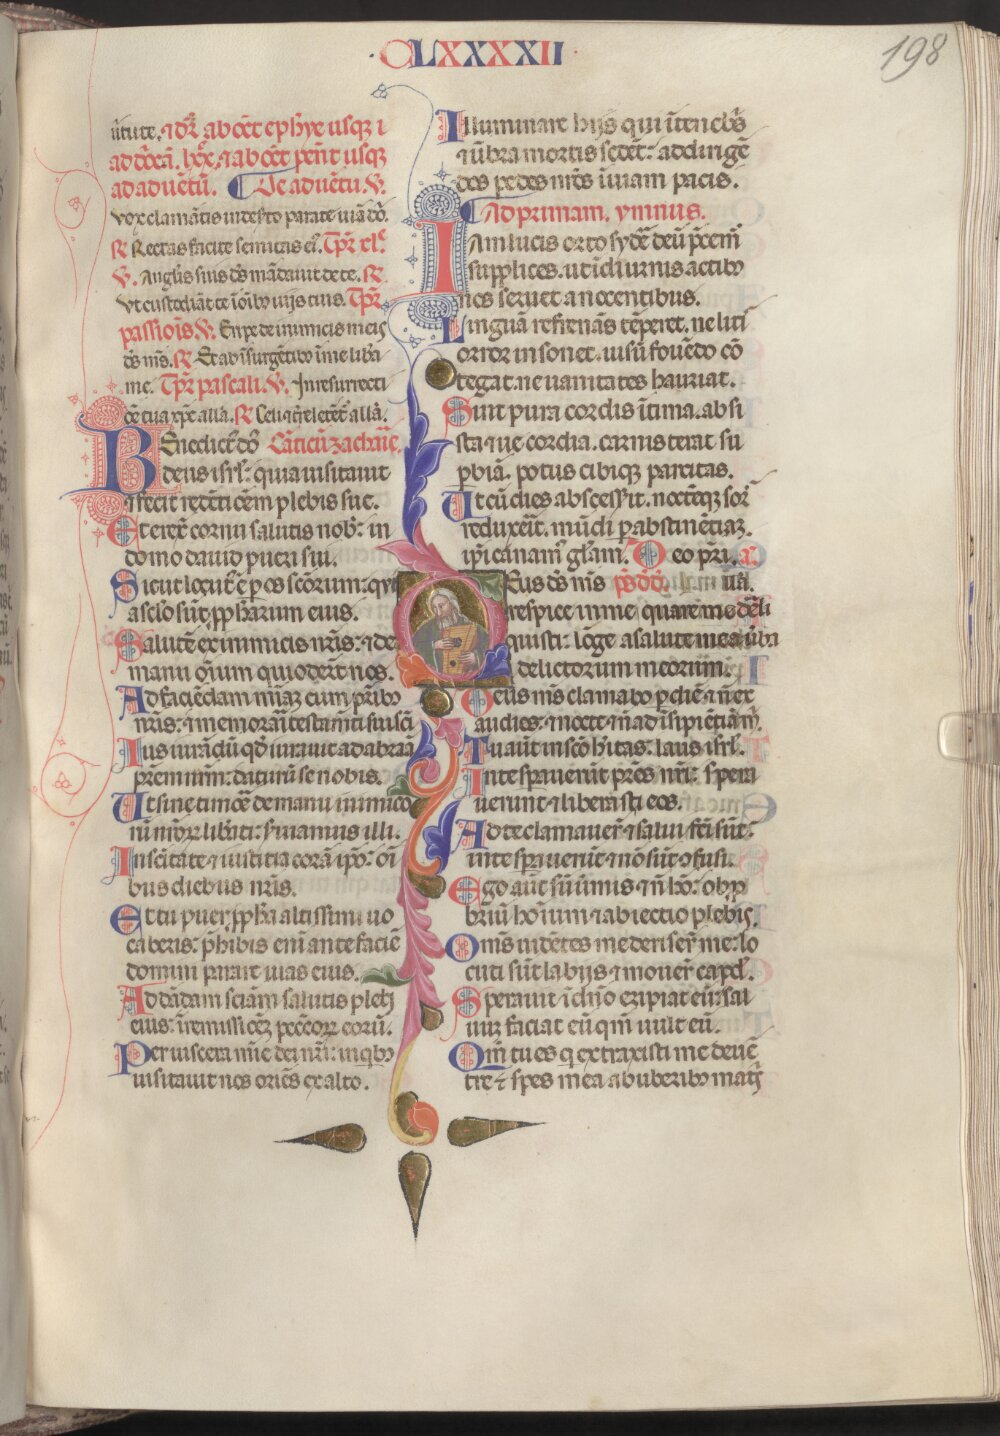 CLXXXXII
198
ūtute. ⁊ dr̄. ab oct̄ ephȳe usqꝫ i
ad aduētū. De aduētu. ℣.
vox clamātis in deserto parate uiā dn̄o.
℟ Rectas facite semitas ei᷒. Tpr̄
℣. Angl̓is suis ds̄ mādauit de te. ℟.
vt custodiāt te ī oīb᷒ uijs tuis. Tpr̄
passiōis ℣. Eripe de inimicis meis
ds̄ m̄s. ℟ Et ab īsurgētib᷒ ī me libera
me. Tpr̄ pascali. ℣. In resurrecti
ōe tua xp̄e allā. ℟ Celi ⁊ letēt᷑ allā.
Benedict᷒ dn̄s Cāticū zacharie
deus isrl̄: quia uisitauit
⁊ fecit redētiōem plebis sue.
Et erex̄ cornu salutis nob̄: in
domo dauid pueri sui.
Sicut locut᷒ ē p os scōrum: qui
a sclo sūt ꝓphetarum eius.
Salutē ex inimicis nr̄is: ⁊ de
manu oīum qui oderūt nos.
Ad faciēdam mīaꝫ cum patrib᷒
nr̄is: ⁊ memorari testamēti sui scī
Ius iurādū qd̄ iurauit ad abraā
prem nr̄m: daturū se nobis.
Ut sine timore de manu inimico
rū nr̄oꝝ libati: s̓uiamus illi.
In scītate ⁊ iustitia corā ip̄o: oī
bus diebus nr̄is.
Et tu puer ꝓpha altissimi uo
caberis: p̄ibis enī ante faciē
domini parare uias eius.
Ad dādam sciām salutis plebi
eius: ī remissiōeꝫ pccōrꝝ eorū.
Per uiscera mīe dei nr̄i: in qb᷒
uisitauit nos oriēs ex alto.
Illuminare hijs qui ī teneb̄s
⁊ ūbra mortis sedēt: ad dirigē
dos pedes nr̄os ī uiam pacis.
Ad primam. ymnus.
Iam lucis orto sydē deū p̄cem᷒
supplices. ut ī diurnis actib᷒
nos seruet a nocentibus.
Linguā refrenās tēperet. ne liti
orror insonet. uisū fouēdo cō
tegat. ne uanitates hauriat.
Sint pura cordis ītima. absi
stat ⁊ ue cordia. carnis terat su
p̄biā. potus cibiqꝫ parcitas.
Ut cū dies abscesserit. noctēqꝫ sor᷒
reduxerit. mūdi p abstinētiaꝫ.
ip̄i canam᷒ gl̄am. Deo pr̄i.
Deus ds̄ m̄s
respice in me quare me dereli
quisti: lōge a salute mea uba
delictorum meorum.
Deus m̄s clamabo p diē ⁊ n̄ ex
audies: ⁊ nocte ⁊ n̄ ad īsipiētiā m̄.
Tu aūt in scō h̄itas: laus isrl̄.
In te sperauerūt patres nr̄i: spera
uerunt ⁊ liberasti eos.
Ad te clamauer̄ ⁊ salui fcī sūt:
in te sperauerūt ⁊ nō sūt ꝯfusi.
Ego aūt sū ūmis ⁊ n̄ hō: obp
briū hoīum ⁊ abiectio plebis.
Oms̄ uidētes me deriser̄ me: lo
cuti sūt labijs ⁊ mouer̄ caput.
Sperauit ī dn̄o eripiat eū: sal
uuꝫ faciat eū qm̄ uult eū.
Qm̄ tu es q extraxisti me de uē
tre ⁊ spes mea ab uberib᷒ matris